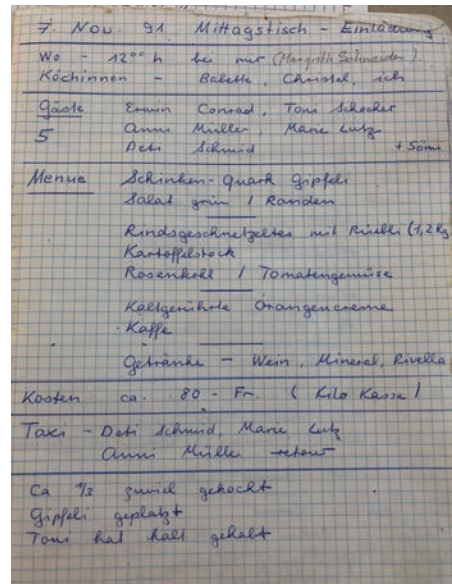 7. Nov. 91 Mittagstisch - Einladung
Wo - 12⁰⁰ h bei mir (Margrith Schneider)
Köchinnen - Babette, Christel, ich
Gäste Erwin Conrad, Toni Schocher
5 Anni Müller, Marie Lutz
Deti Schmid + Sohn
Menue Schinken-Quark Gipfeli
Salat grün / Randen
Rindsgeschnetzeltes mit Rüebli (1,2 Kg
Kartoffelstock
Rosenkohl / Tomatengemüse
Kaltgerührte Orangencreme
Kaffe
Getränke - Wein, Mineral, Rivella
Kosten ca. 80 - Fr. (Kilo Kasse)
Taxi - Deti Schmid, Marie Lutz
Anni Müller retour
Ca 1/3 zuviel gekocht
Gipfeli geplatzt
Toni hat kalt gehabt